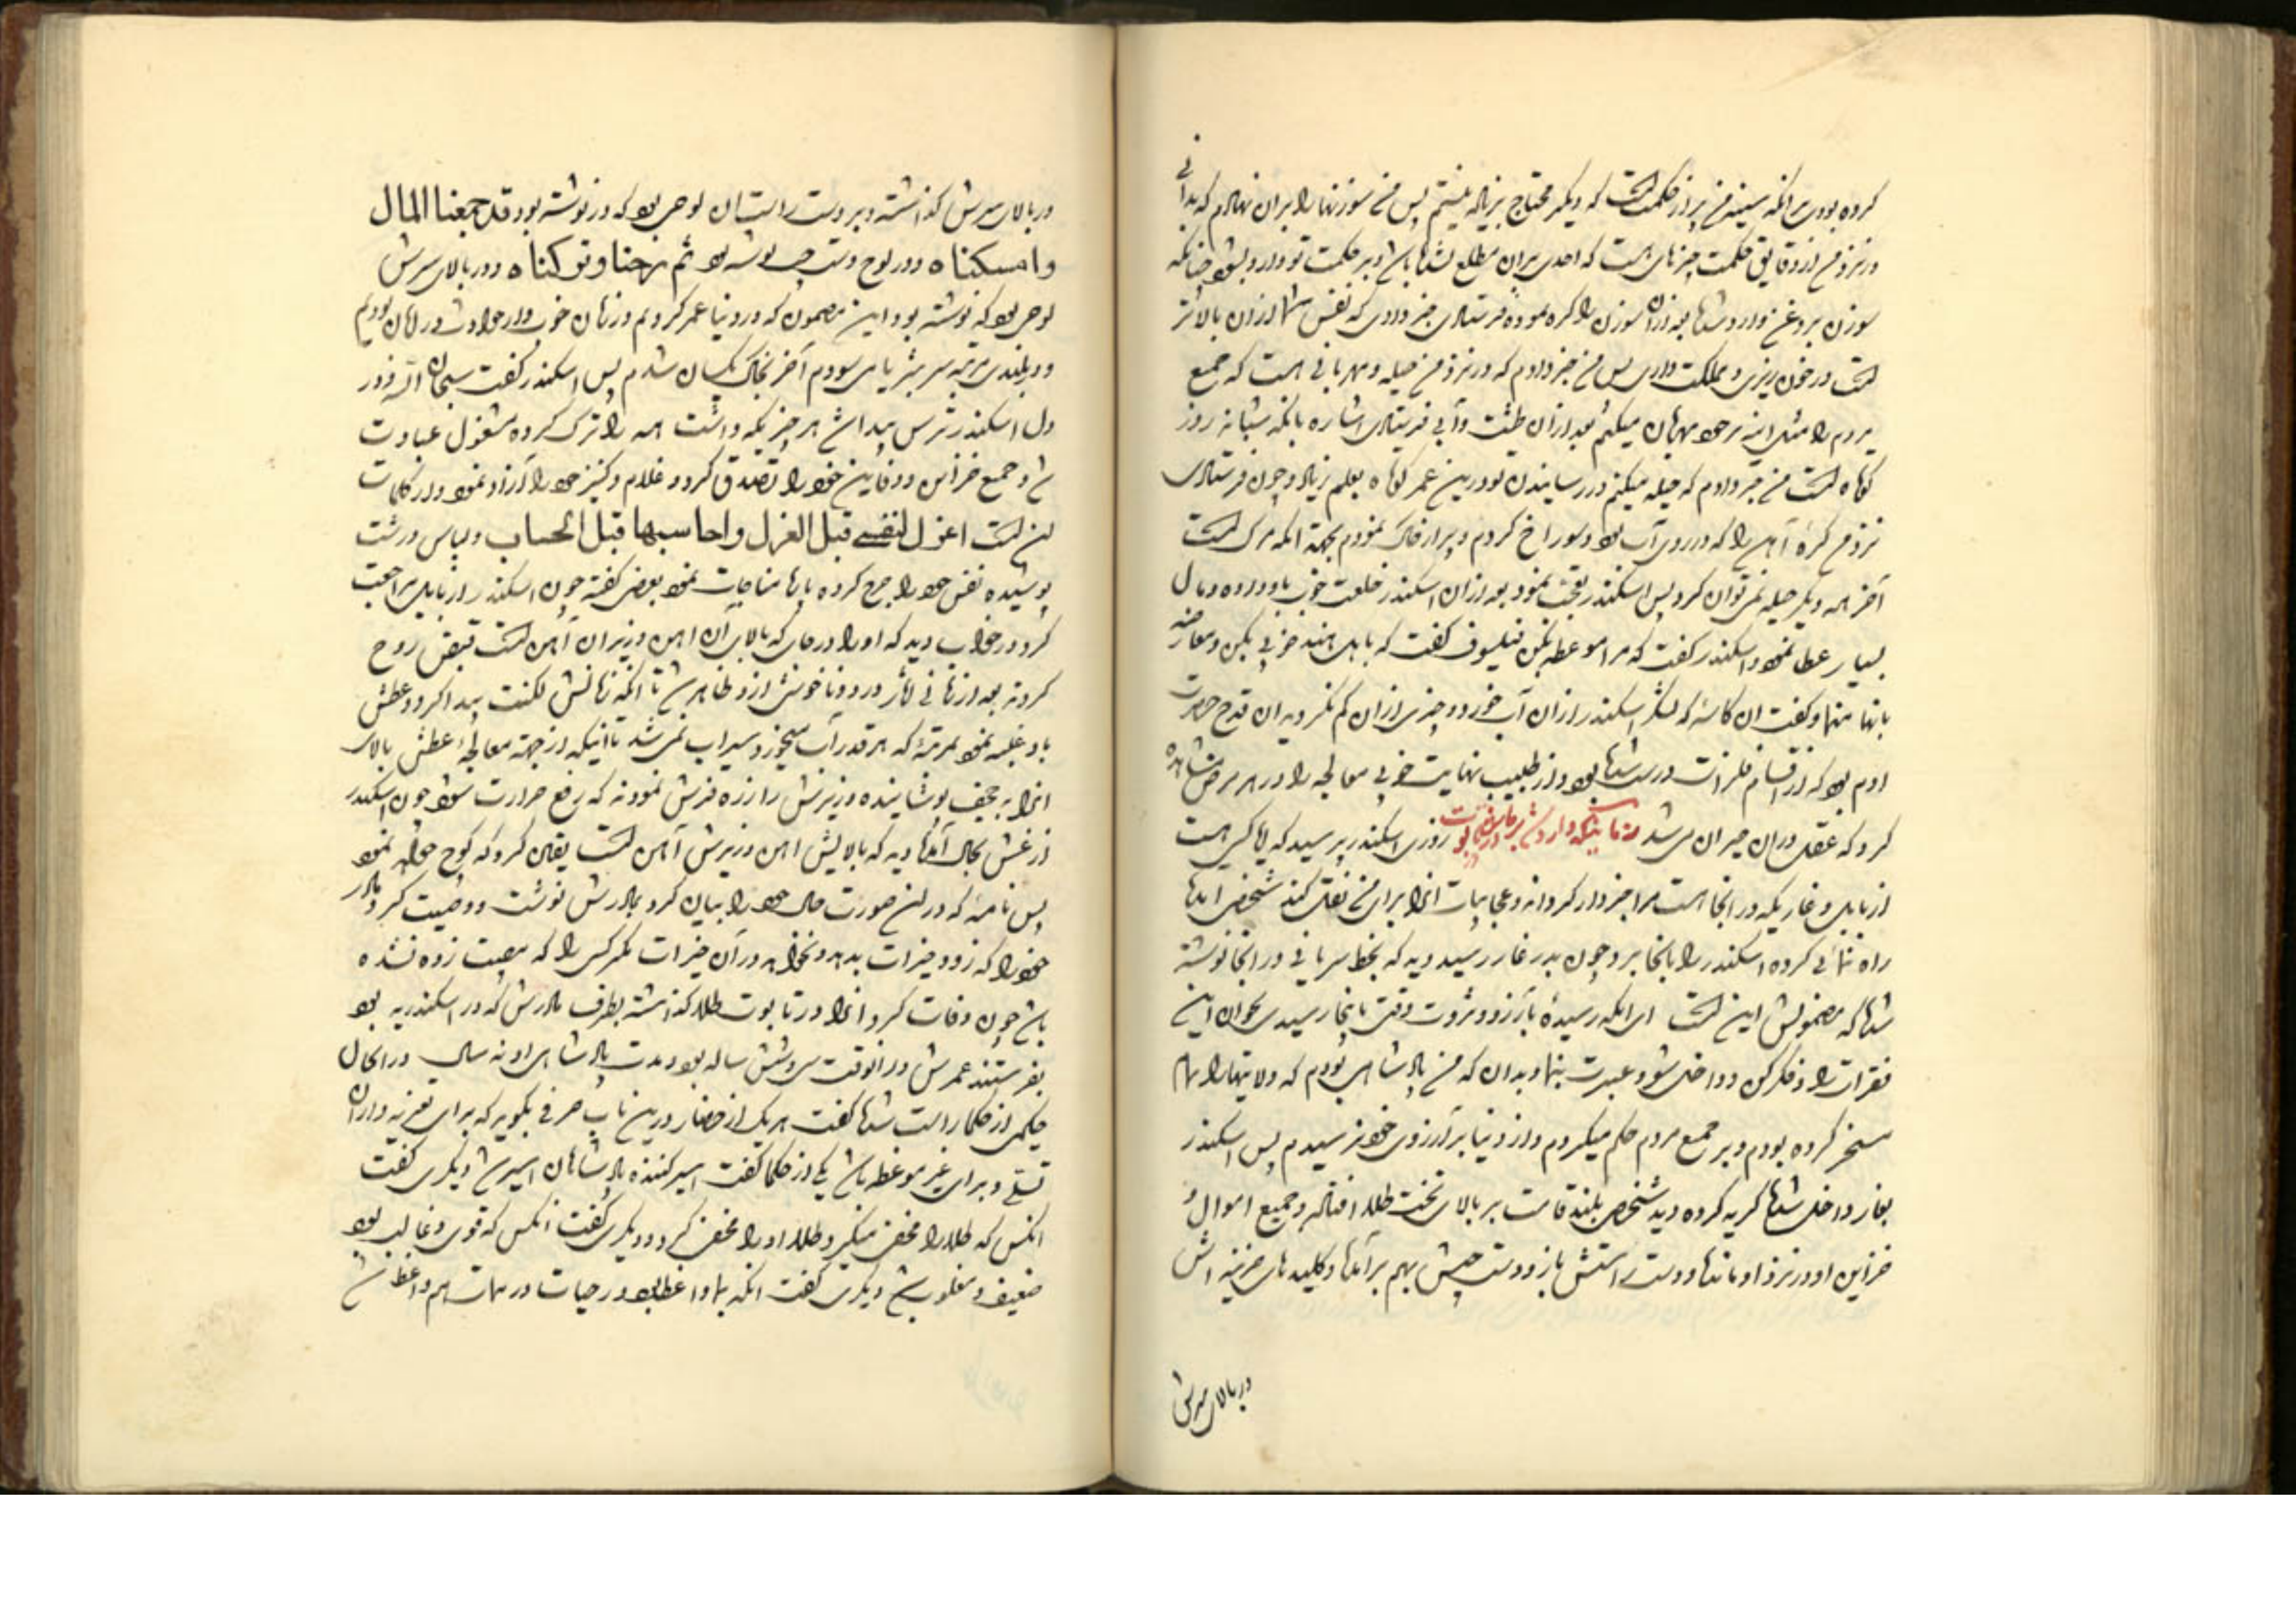 کرده بودی برانکه سینه من پر از حکمتست که دیگر محتاج بزیاده نیستم پس من سوزنها را بران نهادم که بدانی
در نزد من از دقایق حکمت چیزهای هست که احدی بران مطلع نشده باشد و بر حکمت تو وارد بشود چنانکه
سوزن بروغن وارد شده بعد ازان سوزن را کره نموده فرستادی خبر دادی که نفس شما ازان بالاتر
است در خون ریزی و مملکت داری پس من خبر دادم که در نزد من حیله و مهربانی هست که جمیع
مردم را مثل اینه برخود مهربان میکنم بعد ازان طشت و آبی فرستادی اشاره بانکه شبانه روز
کوتاه است من خبر دادم که حیله میکنم در رسانیدن تو درین عمر کوتاه بعلم زیاد و چون فرستادی
نزد من کرهٔ آهن را که در روی آب بود سوراخ کردم و پر از خاک نمودم بجهة انکه مرک است
آخر همه دیگر حیله نمیتوان کرد پس اسکندر تعجب نمود بعد ازان اسکندر خلعت خوب باو داده و مال
بسیار عطا نمود و اسکندر گفت که مرا موعظه بکن فیلسوف گفت که باهل هند خوبی بکن و معارضه
بانها منما و گفت ان کاسهٔ که لشکر اسکندر ازان آب خورد و چیزی ازان کم نگردید ان قدح حضرت
ادم بود که از اقسام فلزات درست شده بود و از طبیب نهایت خوبی معالجه را در هر مرض مشاهده
کرد که عقل دران حیران می شد روزی اسکندر پرسید که ایا کسی هست
از بابل و غاریکه در انجا هست مرا خبردار گرداند و عجایبات انرا برای من نقل کند شخصی امده
راه نمائی کرده اسکندر را بانجا برد چون بدر غار رسید دید که بخط سریانی در انجا نوشته
شده که مضمونش این است ای انکه رسیدهٔ بآرزو و ثروت وقتی بانجا رسیدی بخوان این
فقرات را و فکر کن و داخل شو و عبرت بنما و بدان که من پادشاهی بودم که ولایتها را تمام
مسخر کرده بودم و بر جمیع مردم حکم میکردم و از دنیا برآرزوی خود نرسیدم پس اسکندر
بغار داخل شده گریه کرده دید شخص بلند قامت بر بالای تخت طلا افتاده و جمیع اموال و
خزاین او در نزد او مانده و دست راستش باز و دست چپش بهم برآمده و کلیدهای خزینه اش
در بالای سرش
در بالای سرش گذاشته و بر دست راست ان لوحی بود که در نوشته بود قد جمعنا المال
وامسکناه و در لوح دست چپ نوشته بود ثم رحنا وترکناه و در بالای سرش
لوحی بود که نوشته بود این مضمون که در دنیا عمر کردیم و زمان خوب و از حوادث در امان بودیم
و در بلندی مرتبه سر بثریا می سودم آخر بخاک یکسان شدم پس اسکندر گفت سبحان الله و در
دل اسکندر ترس پیدا شد هر چیزیکه داشت همه را ترک کرده مشغول عبادت
شد و جمیع خزاین و دفاین خود را تصدق کرد و غلام و کنیز خود را آزاد نمود و از کلمات
اوست اعزل لنفسی قبل العزل واحاسبها قبل الحساب و لباس درشت
پوشیده نفس خود را جرح کرده بارها مناجات نمود بعضی گفته چون اسکندر از بابل مراجعت
کرد در خواب دید که او را در جای که بالای آن آهن و زیر آن آهن است قبض روح
کردند بعد از زمانی اثر درد و ناخوشی ازو ظاهر شد تا انکه زبانش لکنت پیدا کرد و عطش
باو غلبه نمود بمرتبهٔ که هر قدر آب میخورد سیراب نمی شد تا آنیکه از جهة معالجهٔ عطش بالای
انرا به جیف پوشانیده و زیرش را زره فرش نمودند که رفع حرارت شود چون اسکندر
از غش بحال آمده دید که بالایش آهن و زیرش آهن است یقین کرد که کوچ خواهد نمود
پس نامهٔ که در ان صورت حال خود را بیان کرد بمادرش نوشت و وصیت کرد مادر
خود را که زود خیرات بدهد و نخواند در آن خیرات مگر کسی را که مصیبت زده نشده
باشد چون وفات کرد انرا در تابوت طلا گذاشته بطرف مادرش که در اسکندریه بود
بفرستند عمرش در انوقت سی و شش ساله بود و مدت پادشاهی او نه سال در انحال
حکیمی از حکما راست شده گفت هر یک از حضار درین باب حرفی بگوید که برای تعزیه داران
تسلی و برای غیر موعظه باشد یکی از حکما گفت اسیر کننده پادشاهان اسیر شد دیگری گفت
انکس که طلا را مخفی میکرد طلا او را مخفی کرد و دیگری گفت انکس که قوی و غالب بود
ضعیف و مغلوب شد دیگری گفت انکه بما واعظ بود در حیات در ممات هم واعظ شد